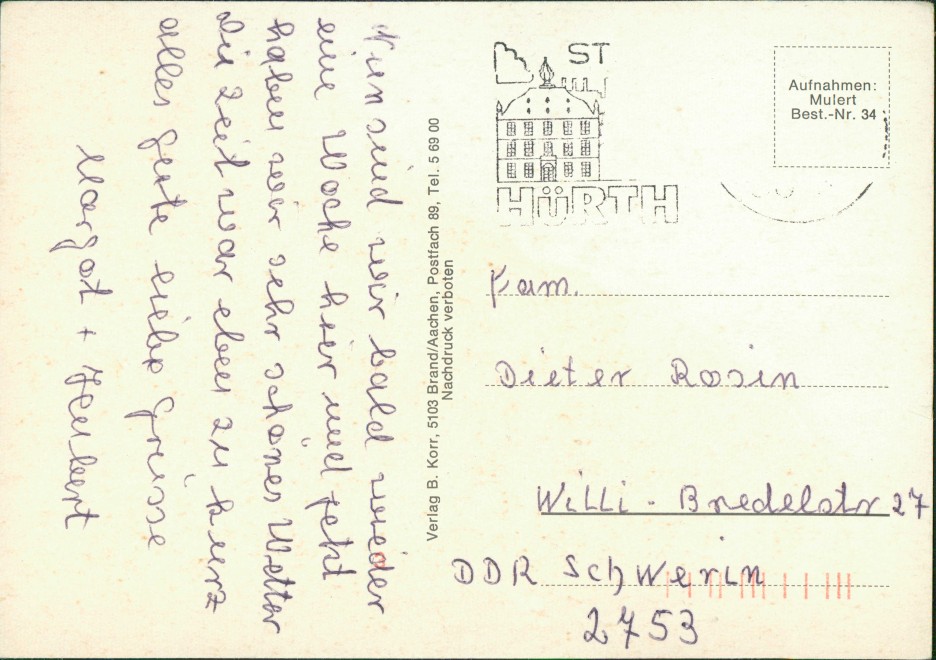 Nun sind wir bald wieder
eine Woche hier und jetzt
haben wir sehr schönes Wetter
Die Zeit war eben zu kurz
alles gute liebe Grüsse
Margot + Herbert
Verlag B. Korr, 5103 Brand/Aachen, Postfach 89, Tel. 5 69 00
Nachdruck verboten
ST
HÜRTH
Aufnahmen:
Mulert
Best.-Nr. 34
Fam.
Dieter Rosin
Willi - Bredelstr 27
DDR Schwerin
2753